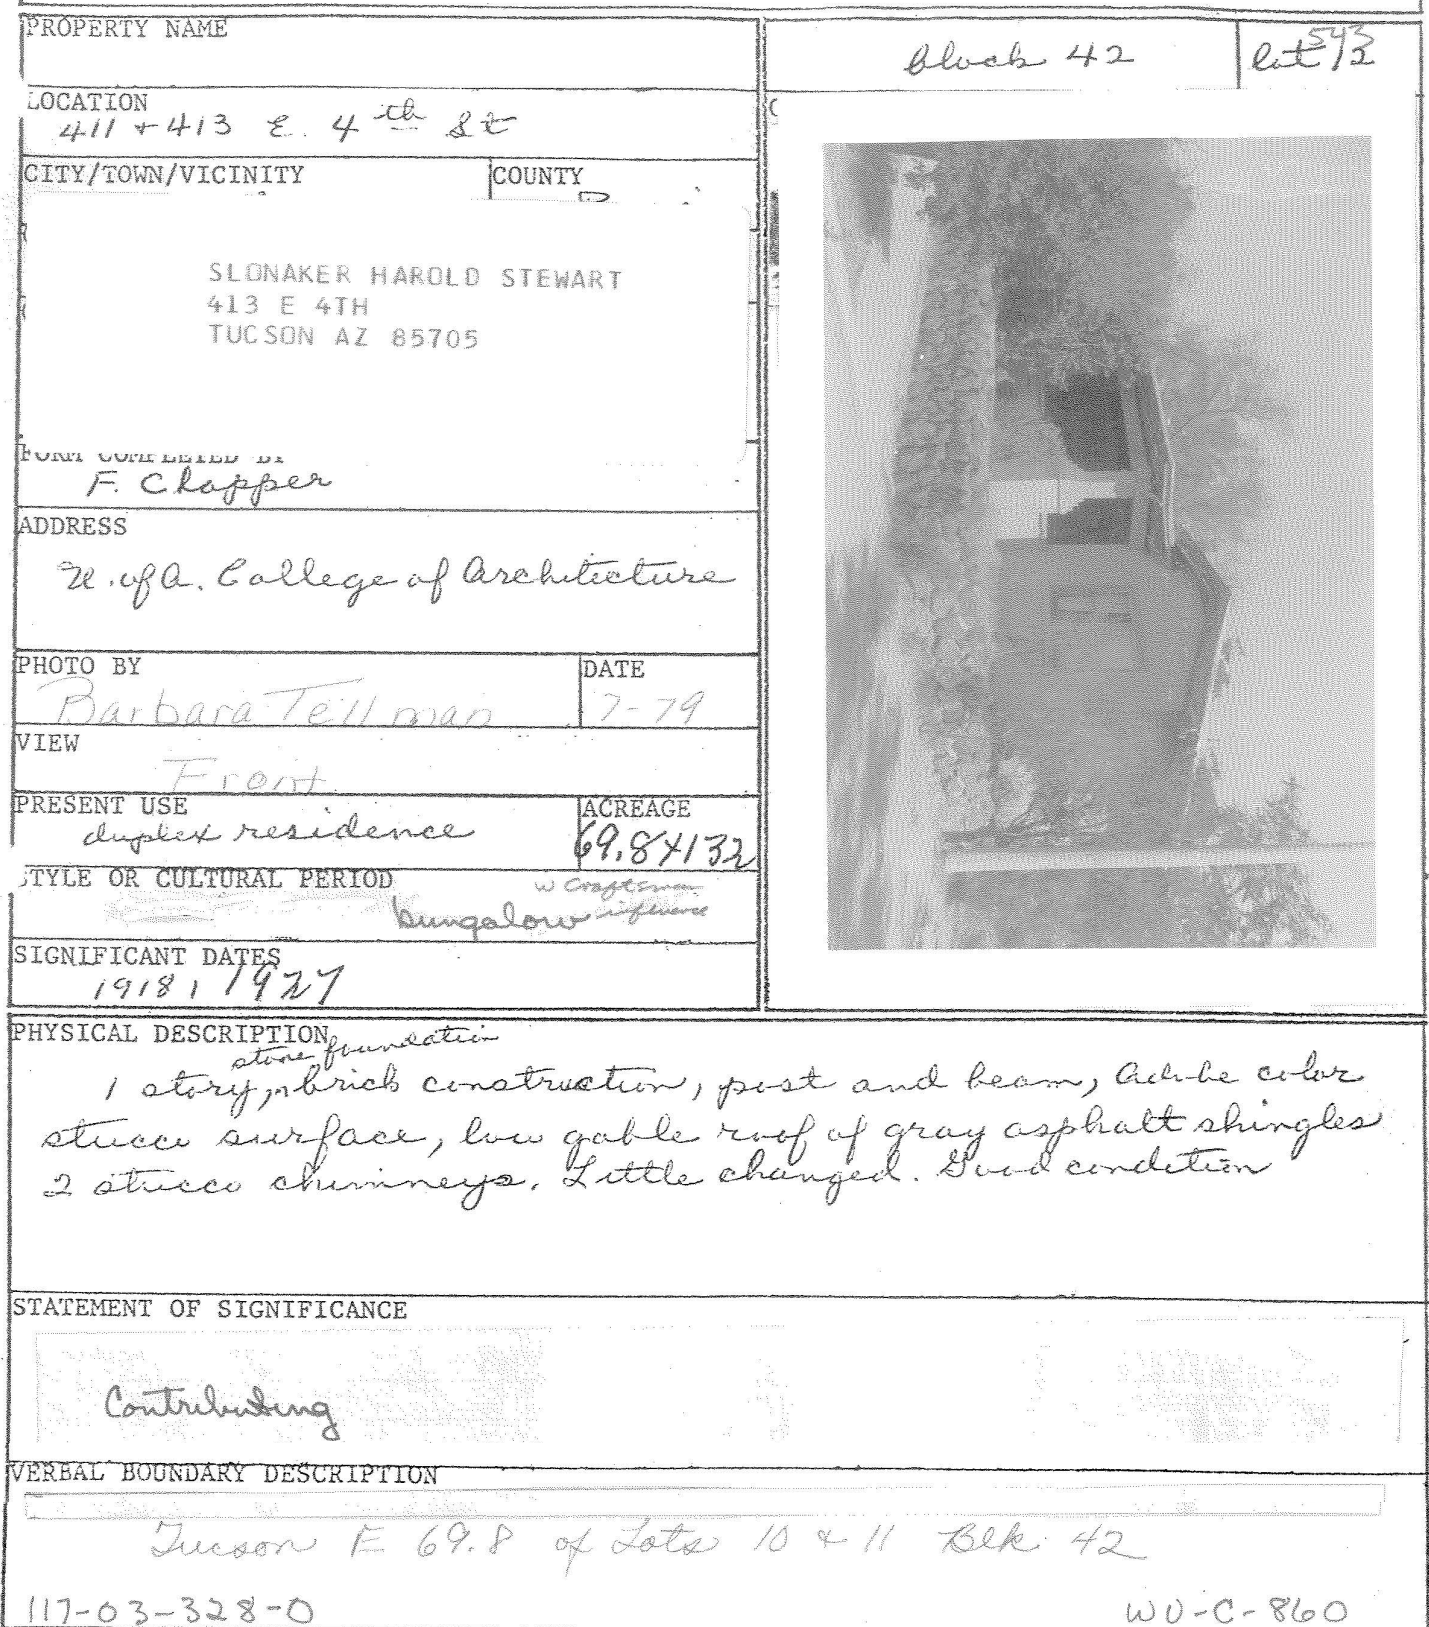 PROPERTY NAME
block 42
lot 12
543
LOCATION
411 + 413 E. 4th St
CITY/TOWN/VICINITY
COUNTY
SLONAKER HAROLD STEWART
413 E 4TH
TUCSON AZ 85705
FORM COMPLETED BY
F. Chapper
ADDRESS
U. of A. College of Architecture
PHOTO BY
Barbara Tellman
DATE
7-79
VIEW
Front
PRESENT USE
duplex residence
ACREAGE
69.8X132
STYLE OR CULTURAL PERIOD
bungalow w Craftsman
influence
SIGNIFICANT DATES
1918, 1927
PHYSICAL DESCRIPTION
stone foundation
1 story, brick construction, post and beam, Adobe color
stucco surface, low gable roof of gray asphalt shingles
2 stucco chimneys. Little changed. Good condition
STATEMENT OF SIGNIFICANCE
Contributing
VERBAL BOUNDARY DESCRIPTION
Tucson E 69.8 of Lots 10 & 11 Blk 42
117-03-328-0
WU-C-860